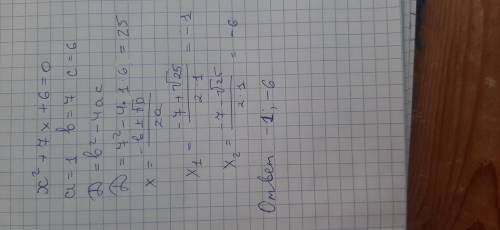 x² + 7x + 6 = 0
a = 1 b = 7 c = 6
D = b² - 4ac
D = 7² - 4·1·6 = 25
x = -b ± √D / 2a
x₁ = -7 + √25 / 2·1 = -1
x₂ = -7 - √25 / 2·1 = -6
Ответ -1; -6